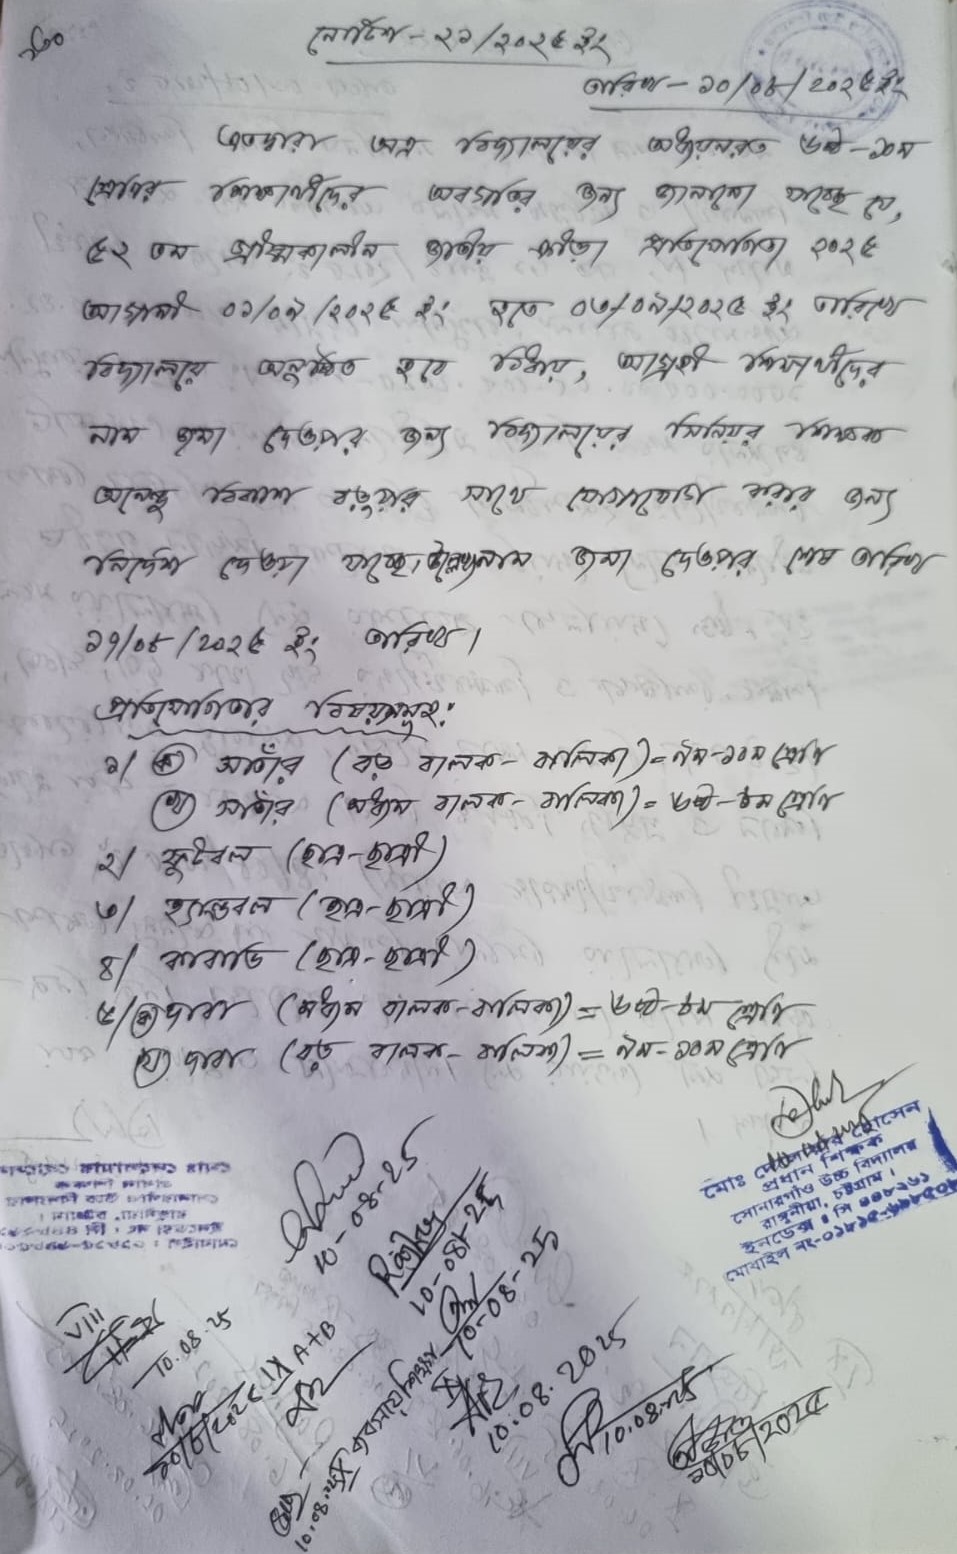 ১৬০
নোটিশ - ২১/২০২৫ ইং
তারিখ - ১০/০৮/২০২৫ ইং
এতদ্বারা অত্র বিদ্যালয়ের অধ্যয়নরত ৬ষ্ঠ-১০ম
শ্রেণির শিক্ষার্থীদের অবগতির জন্য জানানো যাচ্ছে যে,
৫২ তম গ্রীষ্মকালীন জাতীয় ক্রীড়া প্রতিযোগিতা ২০২৫
আগামী ০১/০৯/২০২৫ ইং হতে ০৩/০৯/২০২৫ ইং তারিখে
বিদ্যালয়ে অনুষ্ঠিত হবে বিধায়, আগ্রহী শিক্ষার্থীদের
নাম জমা দেওয়ার জন্য বিদ্যালয়ের সিনিয়র শিক্ষক
বিকাশ বড়ুয়ার সাথে যোগাযোগ করার জন্য
নির্দেশ দেওয়া যাচ্ছে। উল্লেখ্য নাম জমা দেওয়ার শেষ তারিখ
১৭/০৮/২০২৫ ইং তারিখ।
প্রতিযোগিতার বিষয়সমূহ:
১/ (ক) সাতাঁর (বড় বালক - বালিকা) = ৯ম-১০ম শ্রেণি
(খ) সাতাঁর (মধ্যম বালক - বালিকা) = ৬ষ্ঠ-৮ম শ্রেণি
২/ ফুটবল (ছাত্র-ছাত্রী)
৩/ হ্যান্ডবল (ছাত্র-ছাত্রী)
৪/ কাবাডি (ছাত্র-ছাত্রী)
৫/ (ক) দাবা (মধ্যম বালক-বালিকা) = ৬ষ্ঠ-৮ম শ্রেণি
(খ) দাবা (বড় বালক - বালিকা) = ৯ম-১০ম শ্রেণি
মোঃ দেলোয়ার হোসেন
প্রধান শিক্ষক
সোনারগাঁও উচ্চ বিদ্যালয়
রাঙ্গুনীয়া, চট্টগ্রাম।
ইনডেক্স : সি ৪৪৮২৬১
মোবাইল নং-০১৮১৫
10-08-25
10-08-25
10-08-25
VIII
10.08.25
IX A+B
১০/৮/২০২৫
10.08.25
X ব্যবসায় শিক্ষা
10.08.2025
10.08.25
১০/০৮/২০২৫